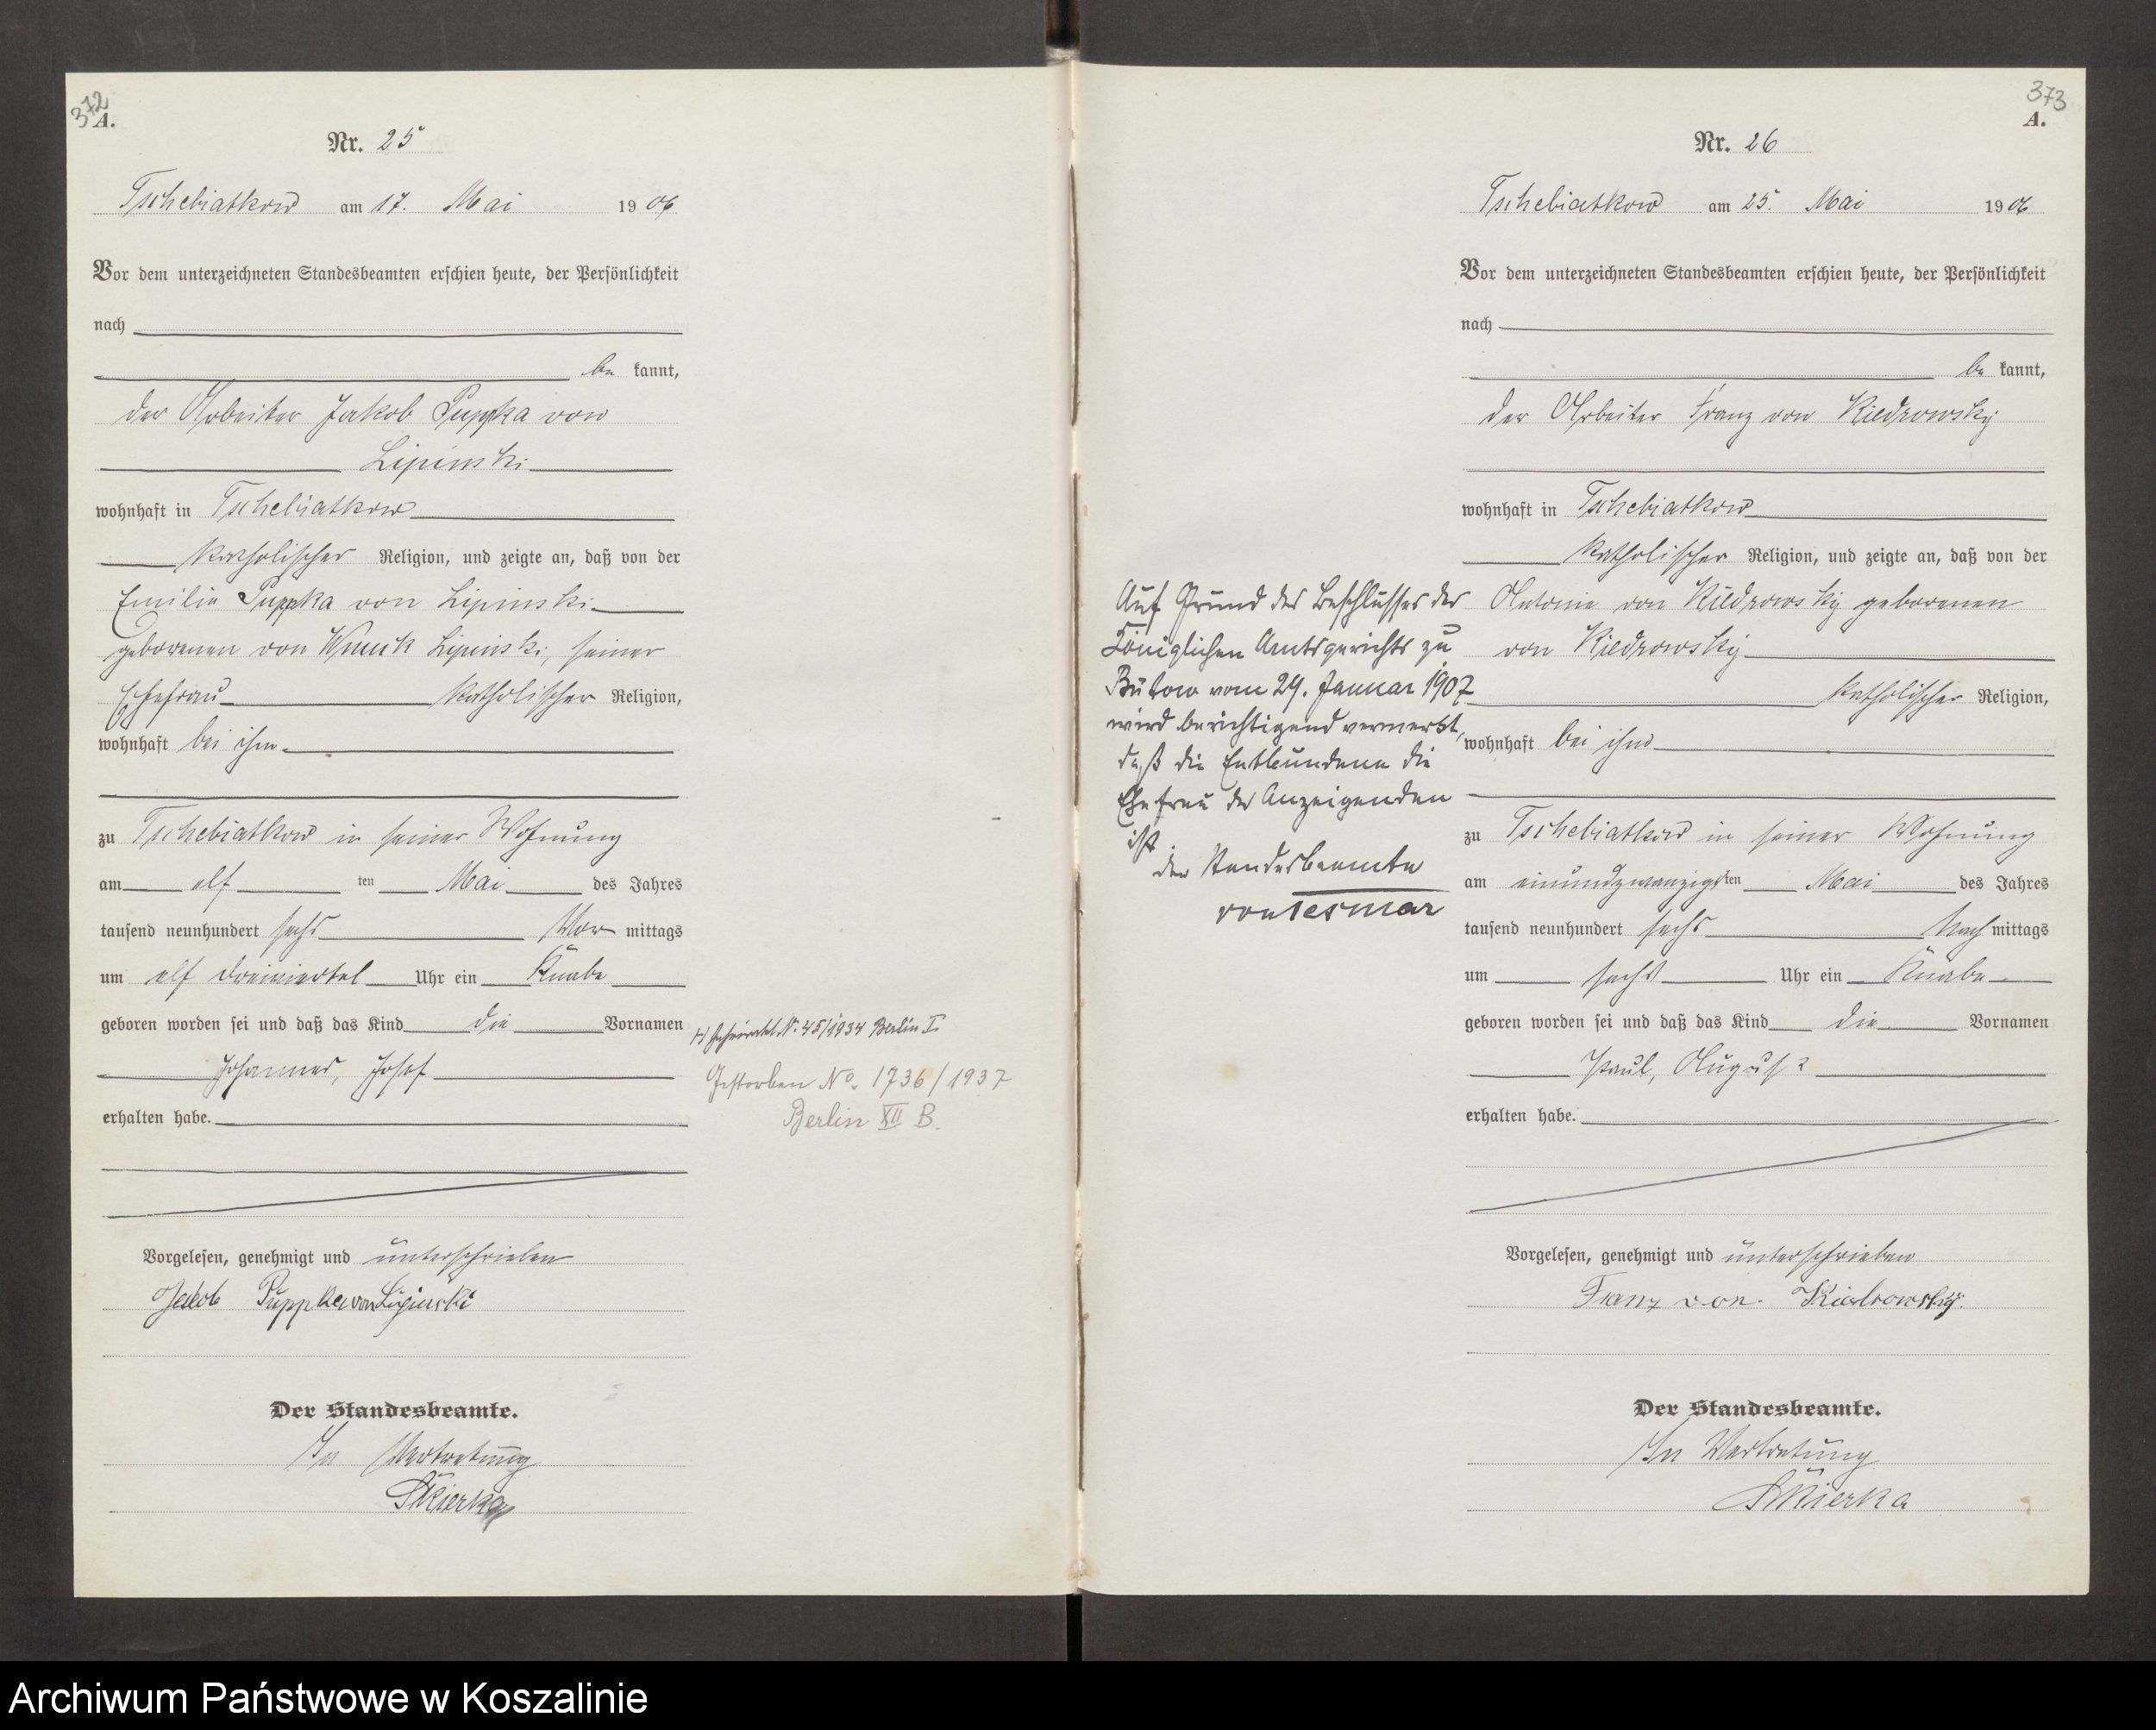 372
A.
Nr. 25
Tschebiatkow am 17. Mai 1906
Vor dem unterzeichneten Standesbeamten erschien heute, der Persönlichkeit
nach
be kannt,
der Arbeiter Jakob Puppka von
Lipinski
wohnhaft in Tschebiatkow
katholischer Religion, und zeigte an, daß von der
Emilie Puppka von Lipinski
geborenen von Wnuck Lipinski, seiner
Ehefrau katholischer Religion,
wohnhaft bei ihm
zu Tschebiatkow in seiner Wohnung
am elf ten Mai des Jahres
tausend neunhundert sechs Vor mittags
um elf dreiviertel Uhr ein Knabe
geboren worden sei und daß das Kind die Vornamen
Johannes, Josef
erhalten habe.
Vorgelesen, genehmigt und unterschrieben
Jakob Puppka von Lipinski
Der Standesbeamte.
In Vertretung
Skierka
1) Geheiratet N. 45/1934 Berlin I.
Gestorben No. 1736/1937
Berlin XII B.
373
A.
Nr. 26
Tschebiatkow am 25. Mai 1906
Vor dem unterzeichneten Standesbeamten erschien heute, der Persönlichkeit
nach
be kannt,
der Arbeiter Franz von Kiedrowsky
wohnhaft in Tschebiatkow
katholischer Religion, und zeigte an, daß von der
Antonie von Kiedrowsky geborenen
von Kiedrowsky
katholischer Religion,
wohnhaft bei ihm
zu Tschebiatkow in seiner Wohnung
am einundzwanzigsten Mai des Jahres
tausend neunhundert sechs Nach mittags
um sechs Uhr ein Knabe
geboren worden sei und daß das Kind die Vornamen
Paul, August
erhalten habe.
Vorgelesen, genehmigt und unterschrieben
Franz von Kiedrowsky.
Der Standesbeamte.
In Vertretung
Skierka
Auf Grund des Beschlusses des
Königlichen Amtsgerichts zu
Bütow vom 29. Januar 1907
wird berichtigend vermerkt,
daß die Entbundene die
Ehefrau des Anzeigenden
ist.
der Standesbeamte
von Tesmar
Archiwum Państwowe w Koszalinie